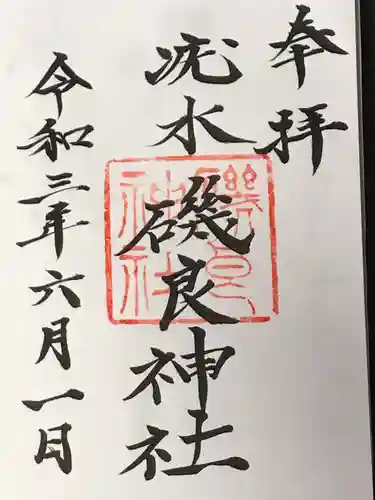 奉拝
疣水磯良神社
磯良神社
令和三年六月一日